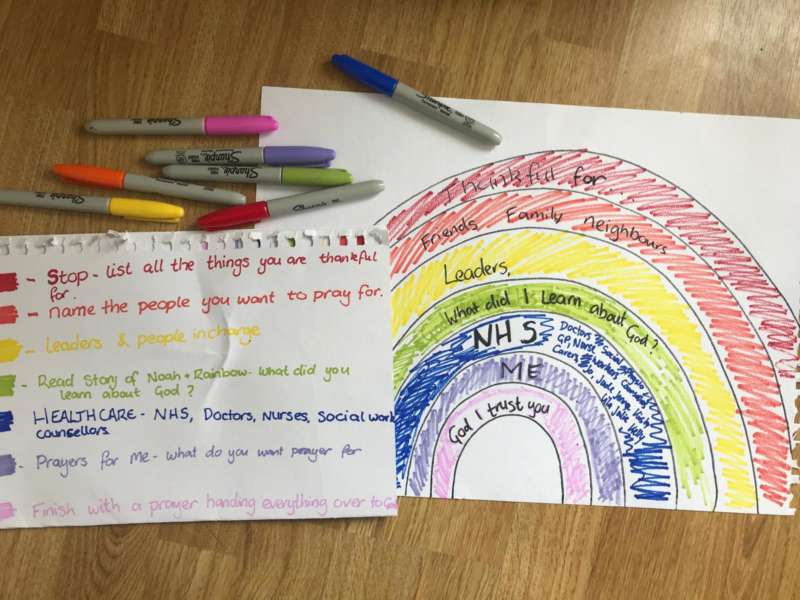 Sharpie
Sharpie
Sharpie
Sharpie
Sharpie
- Stop - list all the things you are thankful
for.
- name the people you want to pray for.
- Leaders & people in charge
- Read Story of Noah + Rainbow - What did you
learn about God?
- HEALTHCARE - NHS, Doctors, Nurses, Social work
counsellors
- Prayers for Me - what do you want prayer for
- Finish with a prayer handing everything over to God
Thankful for...
Friends Family neighbours
Leaders.
What did I learn about God?
NHS
Doctors
Social
GP, Nurse
Carers
ME
God I trust you